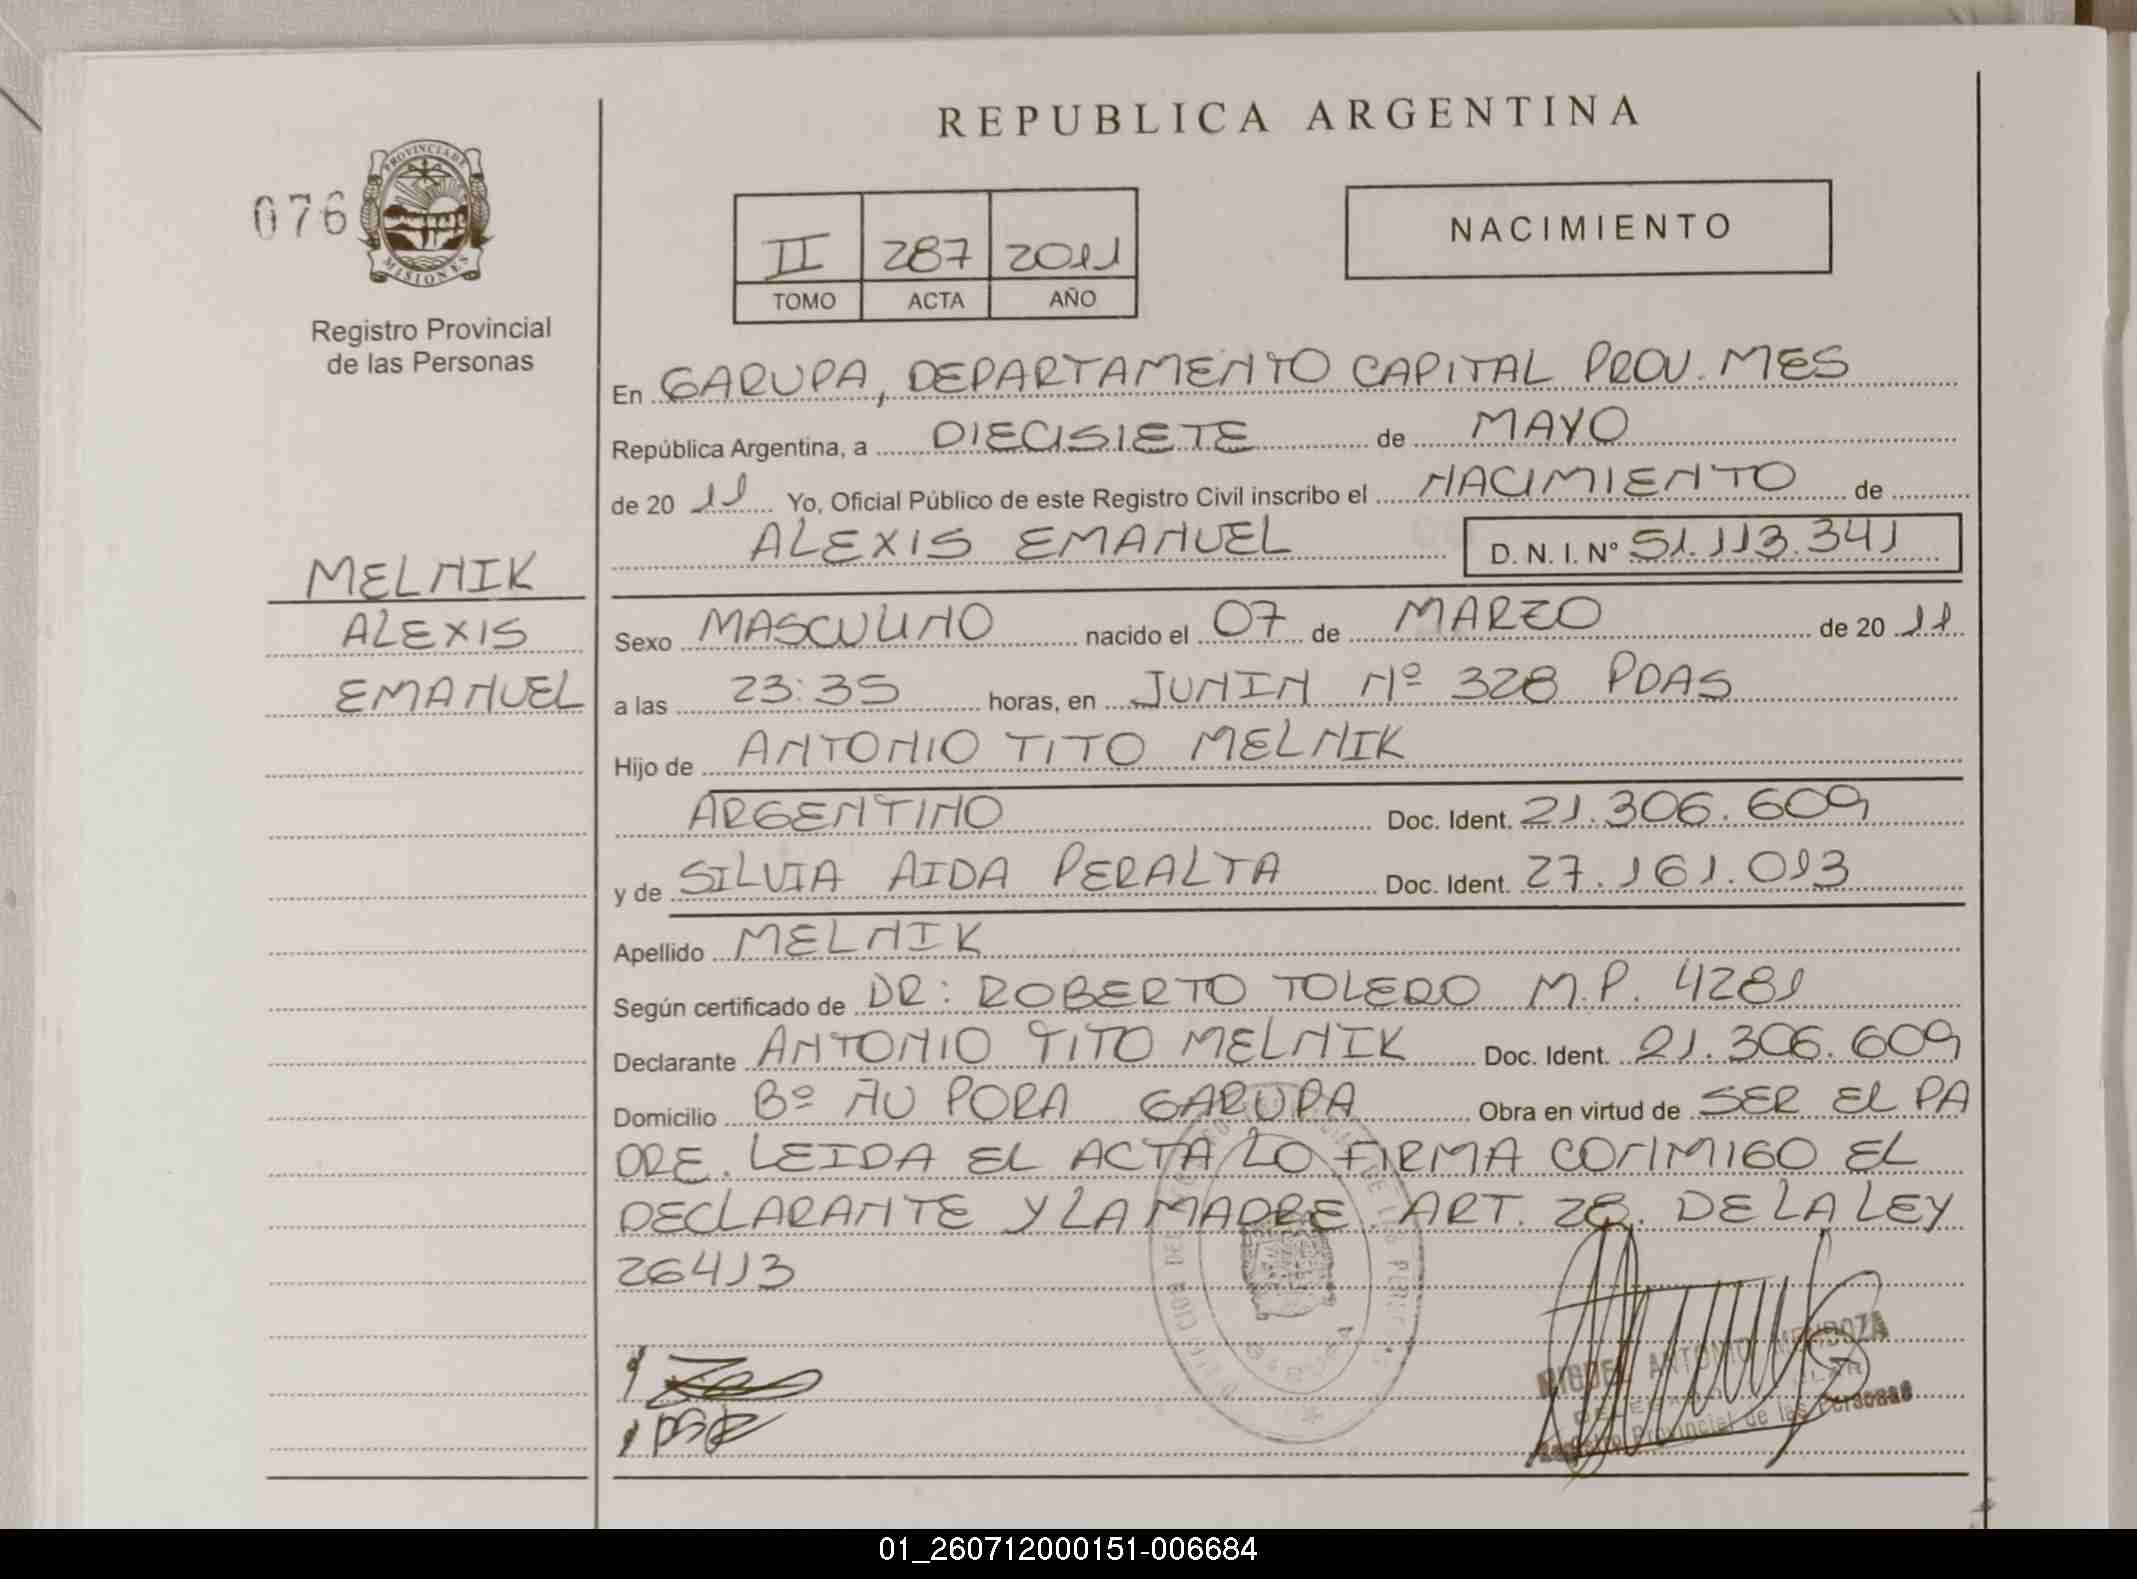 REPUBLICA ARGENTINA
076
PROVINCIA DE
MISIONES
Registro Provincial
de las Personas
II 287 2011
TOMO ACTA AÑO
NACIMIENTO
En GARUPA, DEPARTAMENTO CAPITAL PROV. MES
República Argentina, a DIECISIETE de MAYO
de 20 11 Yo, Oficial Público de este Registro Civil inscribo el NACIMIENTO de
ALEXIS EMANUEL D. N. I. N° 51.113.341
MELNIK
ALEXIS
EMANUEL
Sexo MASCULINO nacido el 07 de MARZO de 20 11
a las 23:35 horas, en JUNIN Nº 328 PDAS
Hijo de ANTONIO TITO MELNIK
ARGENTINO Doc. Ident. 21.306.609
y de SILVIA AIDA PERALTA Doc. Ident. 27.161.013
Apellido MELNIK
Según certificado de DR: ROBERTO TOLEDO M.P. 4281
Declarante ANTONIO TITO MELNIK Doc. Ident. 21.306.609
Domicilio Bº ÑU PORA GARUPA Obra en virtud de SER EL PA
DRE. LEIDA EL ACTA LO FIRMA CONMIGO EL
DECLARANTE Y LA MADRE. ART. 28. DE LA LEY
26413
MIGUEL ANTONIO MENDOZA
Registro Provincial de las Personas
01_260712000151-006684